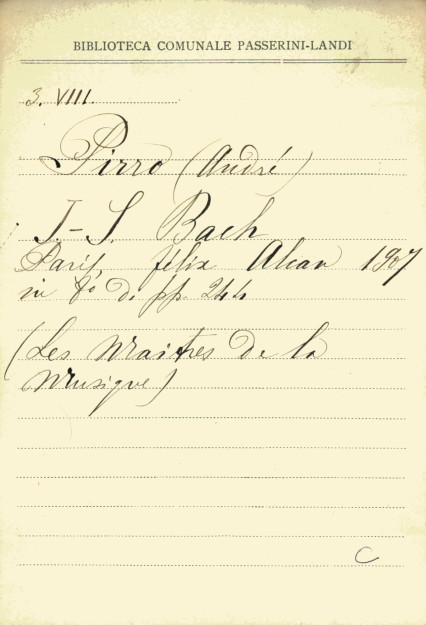 BIBLIOTECA COMUNALE PASSERINI-LANDI
3. VIII.
Pirro (André)
J.-S. Bach
Paris, félix Alcan 1907
in 8º di pp. 244
(Les Maitres de la
Musique)
C